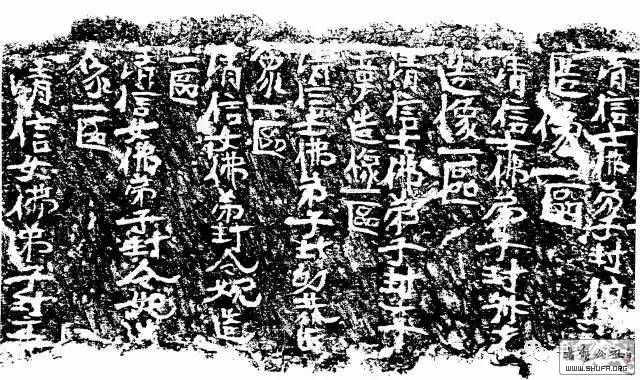 清信士佛弟子封
造像一區
清信士佛弟子封
造像一區
清信士佛弟子封
造像一區
清信士佛弟子封
象一區
清信女佛弟封令妮造
一區
清信女佛弟子封令妃造
象一區
清信女佛弟子封王
書藝公社
WWW.SHUFA.ORG